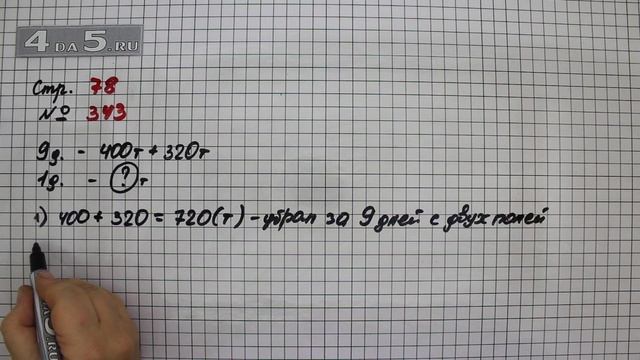 4 DA 5.RU
Стр. 78
№ 343
9д. - 400т + 320т
1д. - ? т
1) 400 + 320 = 720(т) - убрал за 9 дней с двух полей